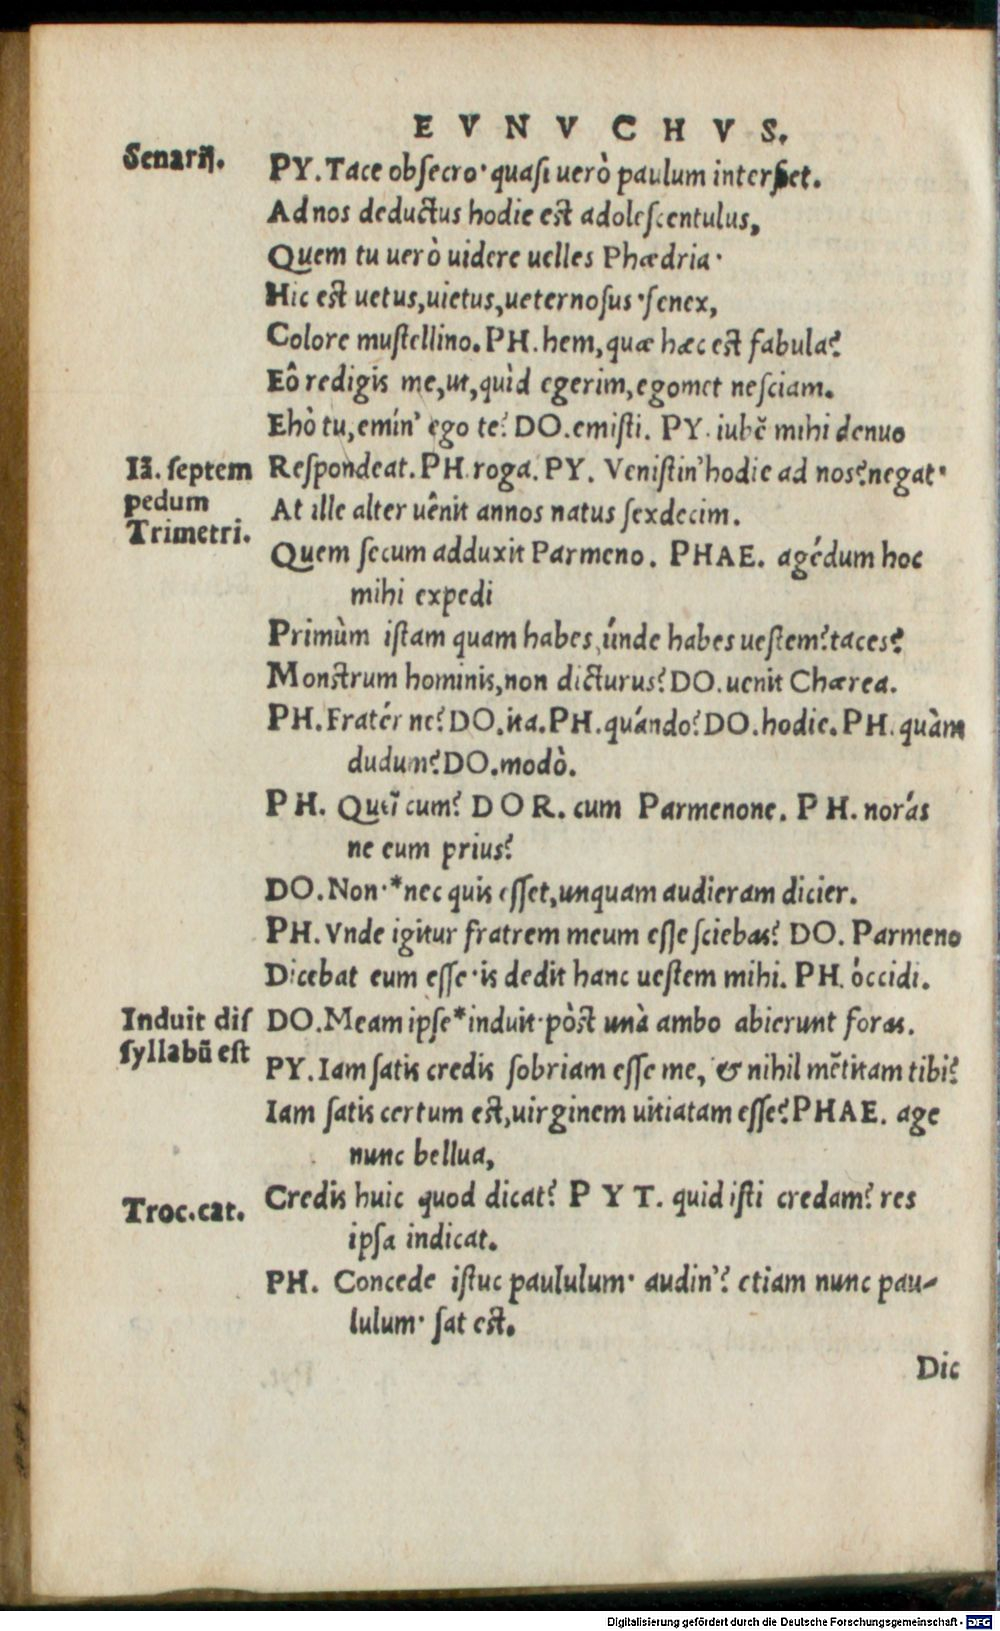 EVNVCHVS.
Senarij.
PY. Tace obsecro· quasi uerò paulum interſiet.
Ad nos deductus hodie eſt adoleſcentulus,
Quem tu uerò uidere uelles Phædria·
Hic eſt uetus, uietus, ueternoſus·ſenex,
Colore muſtellino. PH. hem, quæ hæc eſt fabula?
Eô redigis me, ut, quid egerim, egomet neſciam.
Ehò tu, emín' ego te? DO. emiſti. PY. iubē mihi denuo
Iā. ſeptem pedum
Reſpondeat. PH. roga. PY. Veniſtin' hodie ad nos? negat·
Trimetri.
At ille alter uênit annos natus ſexdecim.
Quem ſecum adduxit Parmeno. PHAE. agédum hoc
mihi expedi
Primùm iſtam quam habes, únde habes ueſtem? taces?
Monſtrum hominis, non dicturus? DO. uenit Chærea.
PH. Fratér ne? DO. ita. PH. quándo? DO. hodie. PH. quàm
dudum? DO. modò.
PH. Quīcum? DOR. cum Parmenone. PH. norás
ne eum prius?
DO. Non·*nec quis eſſet, unquam audieram dicier.
PH. Vnde igitur fratrem meum eſſe ſciebas? DO. Parmeno
Dicebat eum eſſe·is dedit hanc ueſtem mihi. PH. óccidi.
Induit diſ
ſyllabū eſt
DO. Meam ipſe*induit·pòſt unà ambo abierunt foras.
PY. Iam ſatis credis ſobriam eſſe me, & nihil mētitam tibi?
Iam ſatis certum eſt, uirginem uitiatam eſſe? PHAE. age
nunc bellua,
Troc. cat.
Credis huic quod dicat? PYT. quid iſti credam? res
ipſa indicat.
PH. Concede iſtuc paululum· audin'? etiam nunc pau-
lulum· ſat eſt.
Dic
Digitalisierung gefördert durch die Deutsche Forschungsgemeinschaft - DFG